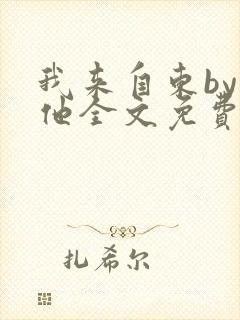 我来自东by
他全文免费
扎希尔